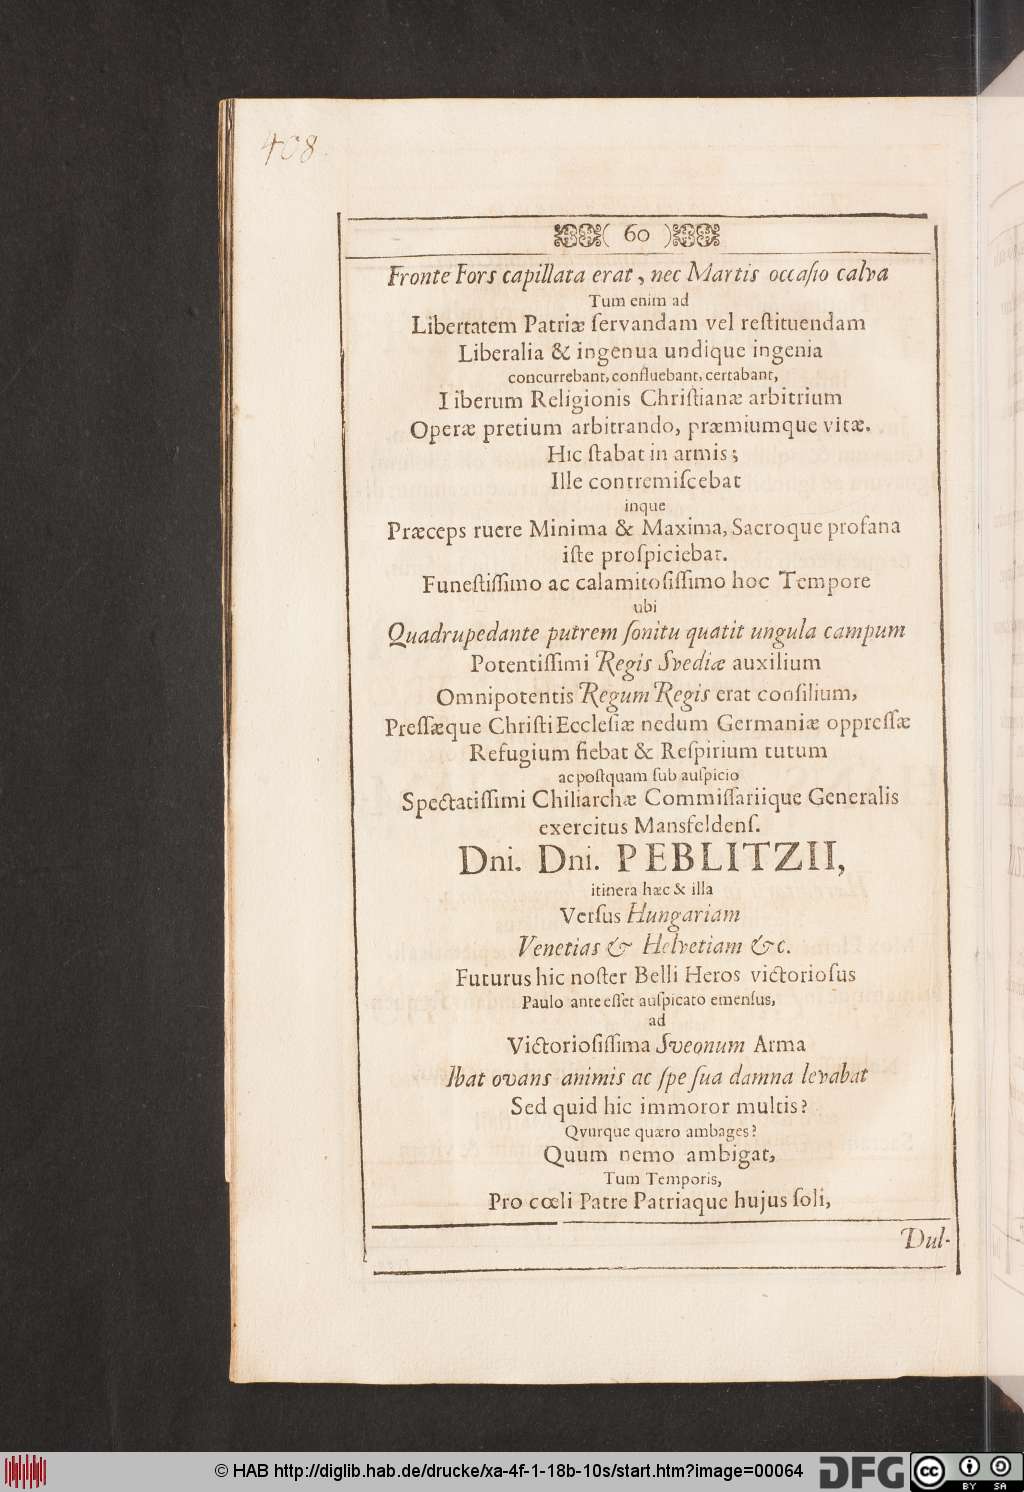 408.
( 60 )
Fronte Fors capillata erat, nec Martis occaſio calva
Tum enim ad
Libertatem Patriæ ſervandam vel reſtituendam
Liberalia & ingenua undique ingenia
concurrebant, confluebant, certabant,
Liberum Religionis Chriſtianæ arbitrium
Operæ pretium arbitrando, præmiumque vitæ.
Hic ſtabat in armis;
Ille contremiſcebat
inque
Præceps ruere Minima & Maxima, Sacroque profana
iſte proſpiciebat.
Funeſtiſſimo ac calamitoſiſſimo hoc Tempore
ubi
Quadrupedante putrem ſonitu quatit ungula campum
Potentiſſimi Regis Svediæ auxilium
Omnipotentis Regum Regis erat conſilium,
Preſſæque Chriſti Eccleſiæ nedum Germaniæ oppreſſæ
Refugium fiebat & Reſpirium tutum
ac poſtquam ſub auſpicio
Spectatiſſimi Chiliarchæ Commiſſariique Generalis
exercitus Mansfeldenſ.
Dni. Dni. PEBLITZII,
itinera hæc & illa
Verſus Hungariam
Venetias & Helvetiam &c.
Futurus hic noſter Belli Heros victorioſus
Paulo ante eſſet auſpicato emenſus,
ad
Victorioſiſſima Sveonum Arma
Ibat ovans animis ac ſpe ſua damna levabat
Sed quid hic immoror multis?
Qvurque quæro ambages?
Quum nemo ambigat,
Tum Temporis,
Pro cœli Patre Patriaque hujus ſoli,
Dul-
© HAB http://diglib.hab.de/drucke/xa-4f-1-18b-10s/start.htm?image=00064
DFG
cc BY SA